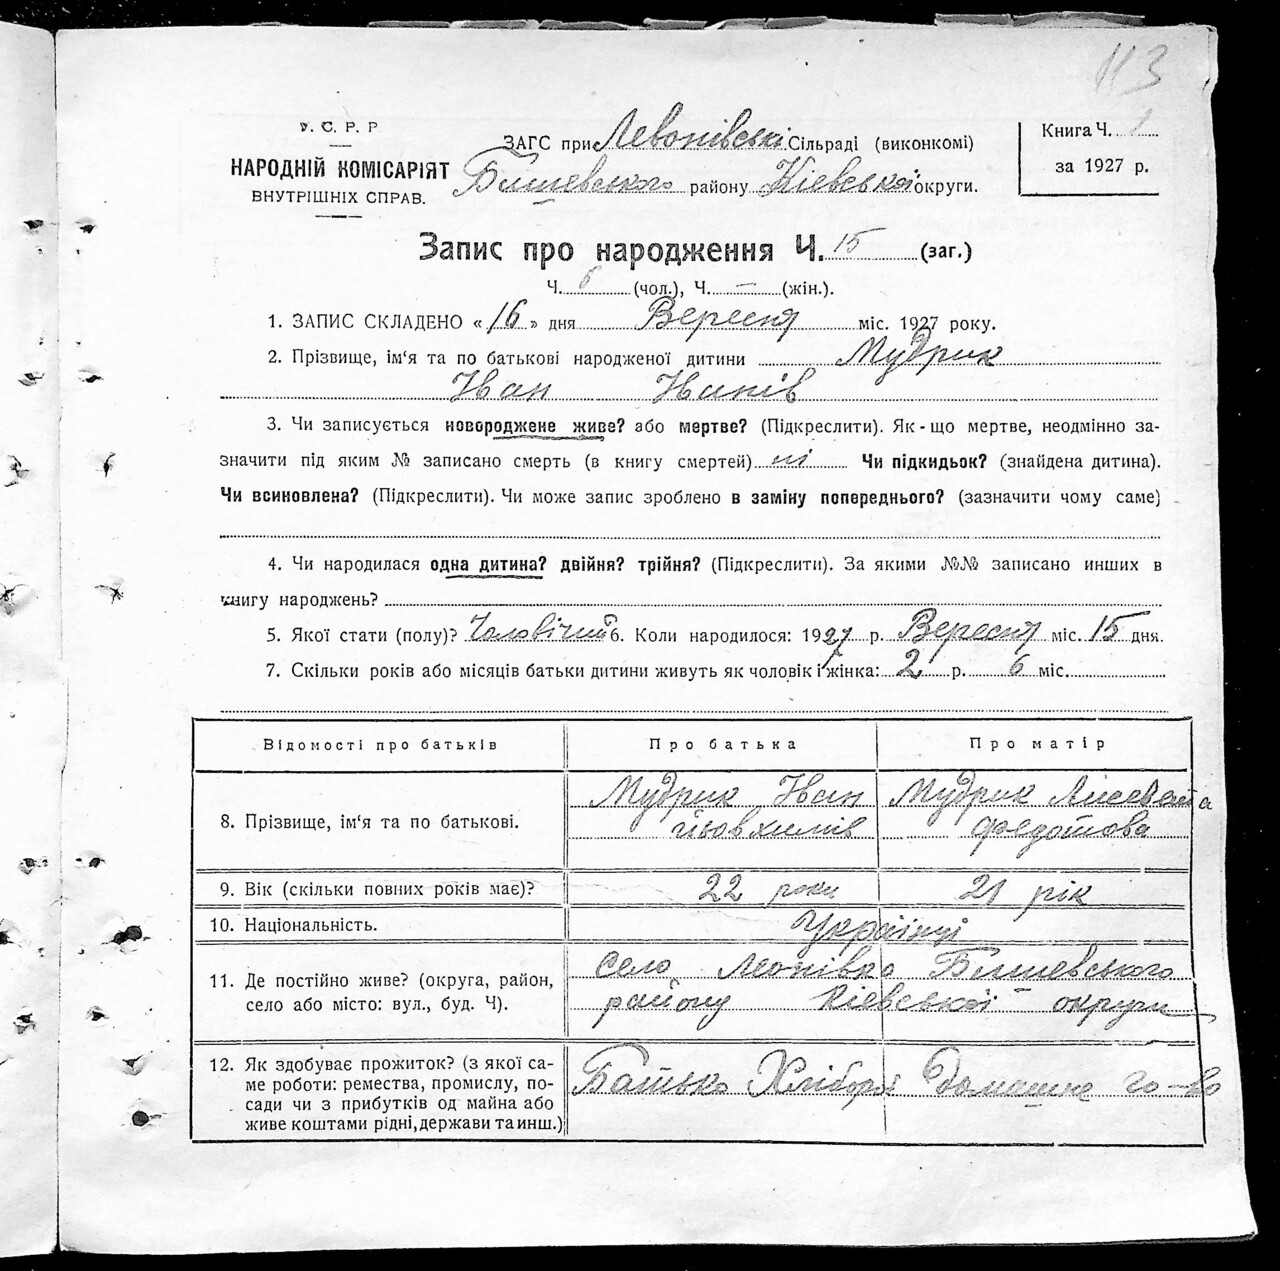 113
У. С. Р. Р
НАРОДНІЙ КОМІСАРІЯТ
ВНУТРІШНІХ СПРАВ.
ЗАГС при Левонівські Сільраді (виконкомі)
Бишевського району Кіевської округи.
Книга Ч. 1
за 1927 р.
Запис про народження Ч. 15 (заг.)
Ч. 6 (чол.), Ч. — (жін.).
1. ЗАПИС СКЛАДЕНО «16» дня Вересня міс. 1927 року.
2. Прізвище, ім‘я та по батькові народженої дитини Мудрик
Іван Іванів
3. Чи записується новороджене живе? або мертве? (Підкреслити). Як-що мертве, неодмінно за-
значити під яким № записано смерть (в книгу смертей) ні Чи підкидьок? (знайдена дитина).
Чи всиновлена? (Підкреслити). Чи може запис зроблено в заміну попереднього? (зазначити чому саме)
4. Чи народилася одна дитина? двійня? трійня? (Підкреслити). За якими №№ записано инших в
книгу народжень?
5. Якої стати (полу)? Чоловічий 6. Коли народилось: 1927 р. Вересня міс. 15 дня.
7. Скільки років або місяців батьки дитини живуть як чоловік і жінка: 2 р. 6 міс.
Відомості про батьків Про батька Про матір
8. Прізвище, ім‘я та по батькові. Мудрик Іван Йовхимів Мудрик Лисевата Федотова
9. Вік (скільки повних років має)? 22 роки 21 рік
10. Національність. Українці
11. Де постійно живе? (округа, район, село Леонівка Бишевського
село або місто: вул., буд. Ч). району Кіевської округи
12. Як здобуває прожиток? (з якої са-
ме роботи: ремества, промислу, по- Батько Хлібороб Домашне го-во
сади чи з прибутків од майна або
живе коштами рідні, держави та инш.)